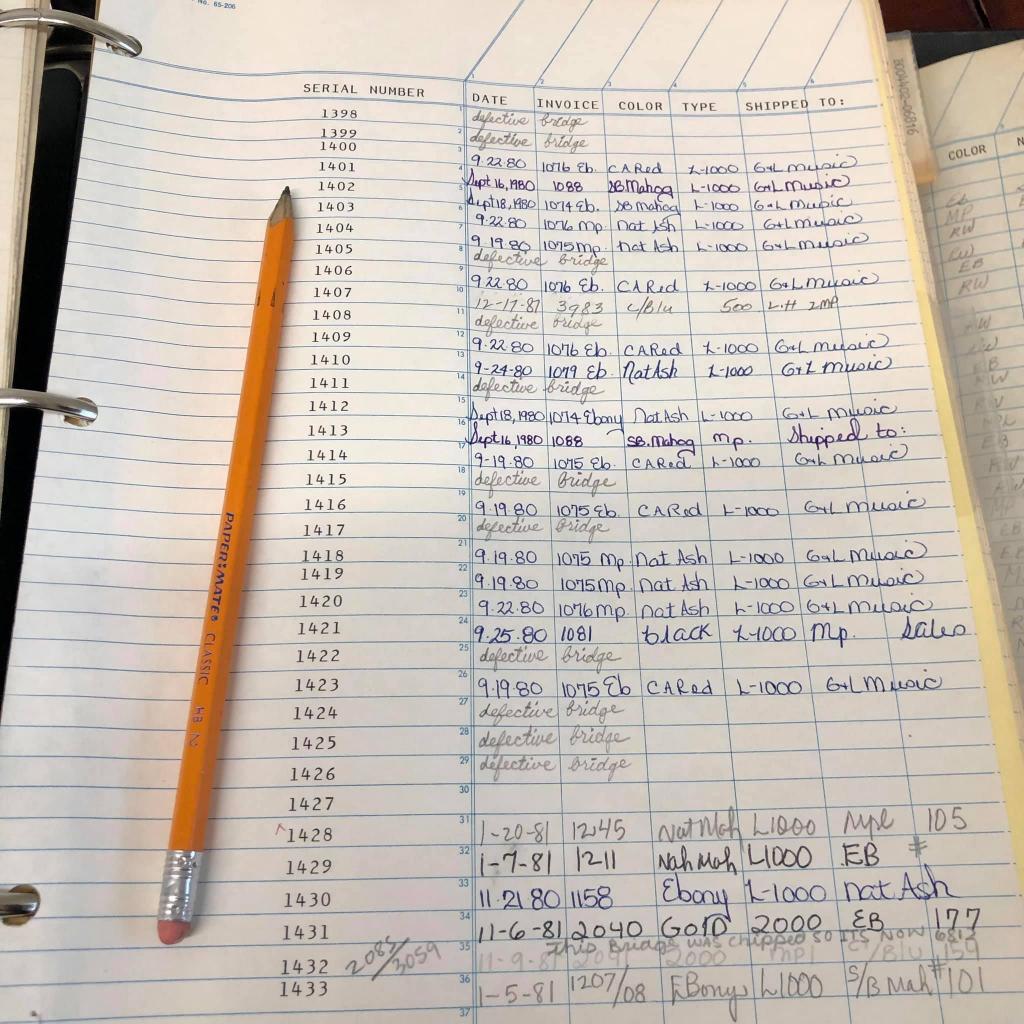 No. 65-206
SERIAL NUMBER DATE INVOICE COLOR TYPE SHIPPED TO:
1398 defective bridge
1399 defective bridge
1400 9.22.80 1076 Eb. CARed L-1000 G+L Music
1401 Sept 16, 1980 1088 SB Mahog L-1000 G+L Music
1402 Sept 18, 1980 1074 Eb. SB Mahog L-1000 G+L Music
1403 9.22.80 1076 Mp. Nat Ash L-1000 G+L Music
1404 9.19.80 1075 Mp. Nat Ash L-1000 G+L Music
1405 defective bridge
1406 9.22.80 1076 Eb. CARed L-1000 G+L Music
1407 12-17-81 3983 c/Blu 500 L.H 2MP
1408 defective bridge
1409 9.22.80 1076 Eb. CARed L-1000 G+L Music
1410 9-24-80 1079 Eb. Nat Ash L-1000 G+L Music
1411 defective bridge
1412 Sept 18, 1980 1074 Ebony Nat Ash L-1000 G+L Music
1413 Sept 16, 1980 1088 SB.Mahog mp. Shipped to:
1414 9-19.80 1075 Eb. CARed L-1000 G+L Music
1415 defective bridge
1416 9.19.80 1075 Eb. CARed L-1000 G+L Music
1417 defective bridge
1418 9.19.80 1075 Mp. Nat Ash L-1000 G+L Music
1419 9.19.80 1075 Mp. Nat Ash L-1000 G+L Music
1420 9.22.80 1076 Mp. Nat Ash L-1000 G+L Music
1421 9.25.80 1081 black L-1000 Mp. Sales
1422 defective bridge
1423 9.19.80 1075 Eb CARed L-1000 G+L Music
1424 defective bridge
1425 defective bridge
1426 defective bridge
1427
1428 1-20-81 1245 Nat Mah L1000 Mpl 105
1429 1-7-81 1211 Nah Mah L1000 EB #
1430 11.21 80 1158 Ebony L-1000 Nat Ash
1431 11-6-81 2040 GOlD 2000 EB 177
This Bridge was chipped so its now 6813
1432 2083/3059 11-9-81 2091 2000 mpl C/Blu 159
1433 1-5-81 1207/08 EBony L1000 S/B Mah #101
PAPER:MATE® CLASSIC HB 2
COLOR
EB
MP
RW
EB
RW